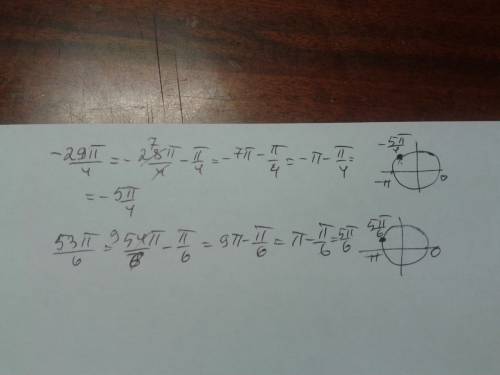 -29π/4 = -28π/4 - π/4 = -7π - π/4 = -π - π/4 =
= -5π/4
-5π/4
-π 0
53π/6 = 54π/6 - π/6 = 9π - π/6 = π - π/6 = 5π/6
5π/6
-π 0